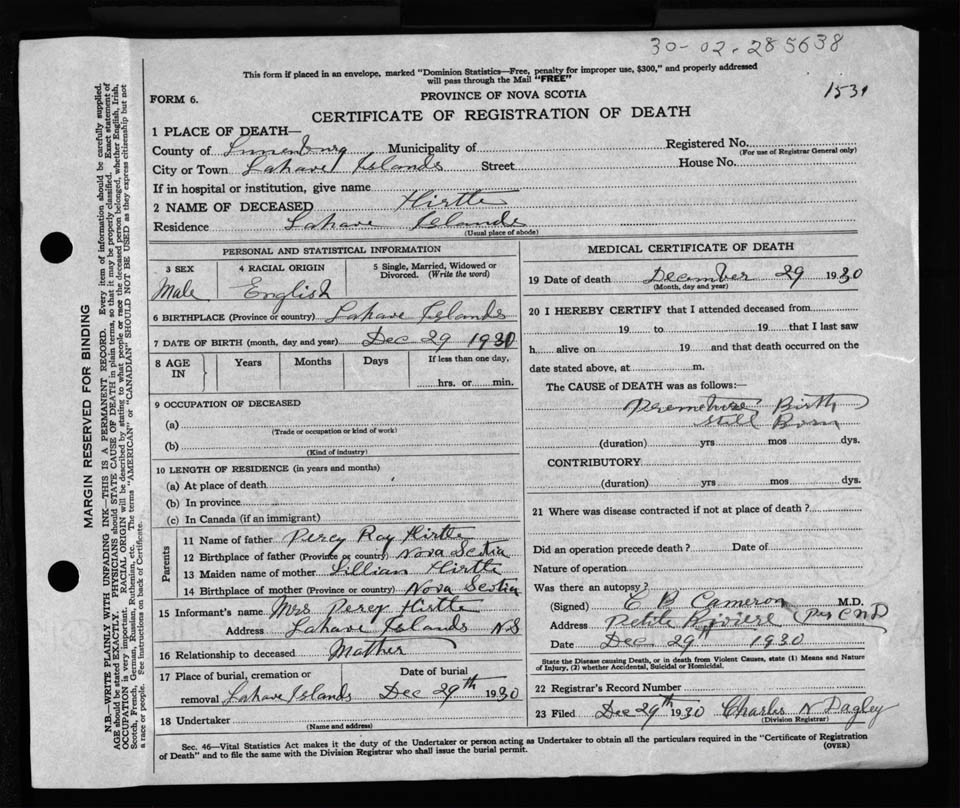 30-02-285638
This form if placed in an envelope, marked "Dominion Statistics—Free, penalty for improper use, $300," and properly addressed
will pass through the Mail "FREE"
1531
FORM 6.
PROVINCE OF NOVA SCOTIA
CERTIFICATE OF REGISTRATION OF DEATH
1 PLACE OF DEATH—
County of Lunenburg Municipality of Registered No.
(For use of Registrar General only)
City or Town Lahave Islands Street House No.
If in hospital or institution, give name
2 NAME OF DECEASED Hirtle
Residence Lahave Islands
(Usual place of abode)
PERSONAL AND STATISTICAL INFORMATION
3 SEX 4 RACIAL ORIGIN 5 Single, Married, Widowed or
Divorced. (Write the word)
Male English
6 BIRTHPLACE (Province or country) Lahave Islands
7 DATE OF BIRTH (month, day and year) Dec 29 1930
8 AGE IN Years Months Days If less than one day,
hrs. or min.
9 OCCUPATION OF DECEASED
(a)
(Trade or occupation or kind of work)
(b)
(Kind of industry)
10 LENGTH OF RESIDENCE (in years and months)
(a) At place of death
(b) In province
(c) In Canada (if an immigrant)
Parents
11 Name of father Percy Ray Hirtle
12 Birthplace of father (Province or country) Nova Scotia
13 Maiden name of mother Lillian Hirtle
14 Birthplace of mother (Province or country) Nova Scotia
15 Informant's name Mrs Percy Hirtle
Address Lahave Islands N.S
16 Relationship to deceased Mother
17 Place of burial, cremation or Date of burial
removal Lahave Islands Dec 29th 1930
18 Undertaker
(Name and address)
MEDICAL CERTIFICATE OF DEATH
19 Date of death December 29 1930
(Month, day and year)
20 I HEREBY CERTIFY that I attended deceased from
19 to 19 that I last saw
h alive on 19 and that death occurred on the
date stated above, at m.
The CAUSE of DEATH was as follows:—
Premature Birth
Still Born
(duration) yrs mos dys.
CONTRIBUTORY
(duration) yrs mos dys.
21 Where was disease contracted if not at place of death?
Did an operation precede death? Date of
Nature of operation
Was there an autopsy?
(Signed) C B Cameron M.D.
Address Petite Riviere
Date Dec 29th 1930
State the Disease causing Death, or in death from Violent Causes, state (1) Means and Nature
of Injury, (2) whether Accidental, Suicidal or Homicidal.
22 Registrar's Record Number
23 Filed Dec 29th 1930 Charles N Pagley
(Division Registrar)
Sec. 46—Vital Statistics Act makes it the duty of the Undertaker or person acting as Undertaker to obtain all the particulars required in the "Certificate of Registration
of Death" and to file the same with the Division Registrar who shall issue the burial permit.
(OVER)
MARGIN RESERVED FOR BINDING
N.B.—WRITE PLAINLY WITH UNFADING INK—THIS IS A PERMANENT RECORD. Every item of information should be carefully supplied.
AGE should be stated EXACTLY. PHYSICIANS should STATE CAUSE OF DEATH in plain terms, so that it may be properly classified. Exact statement of
OCCUPATION is very important. RACIAL ORIGIN will be described by stating to what people or race the deceased person belonged, whether English, Irish,
Scotch, French, German, Russian, Ruthenian, etc. The terms "AMERICAN" or "CANADIAN" SHOULD NOT BE USED as they express citizenship but not
a race or people. See instructions on back of Certificate.